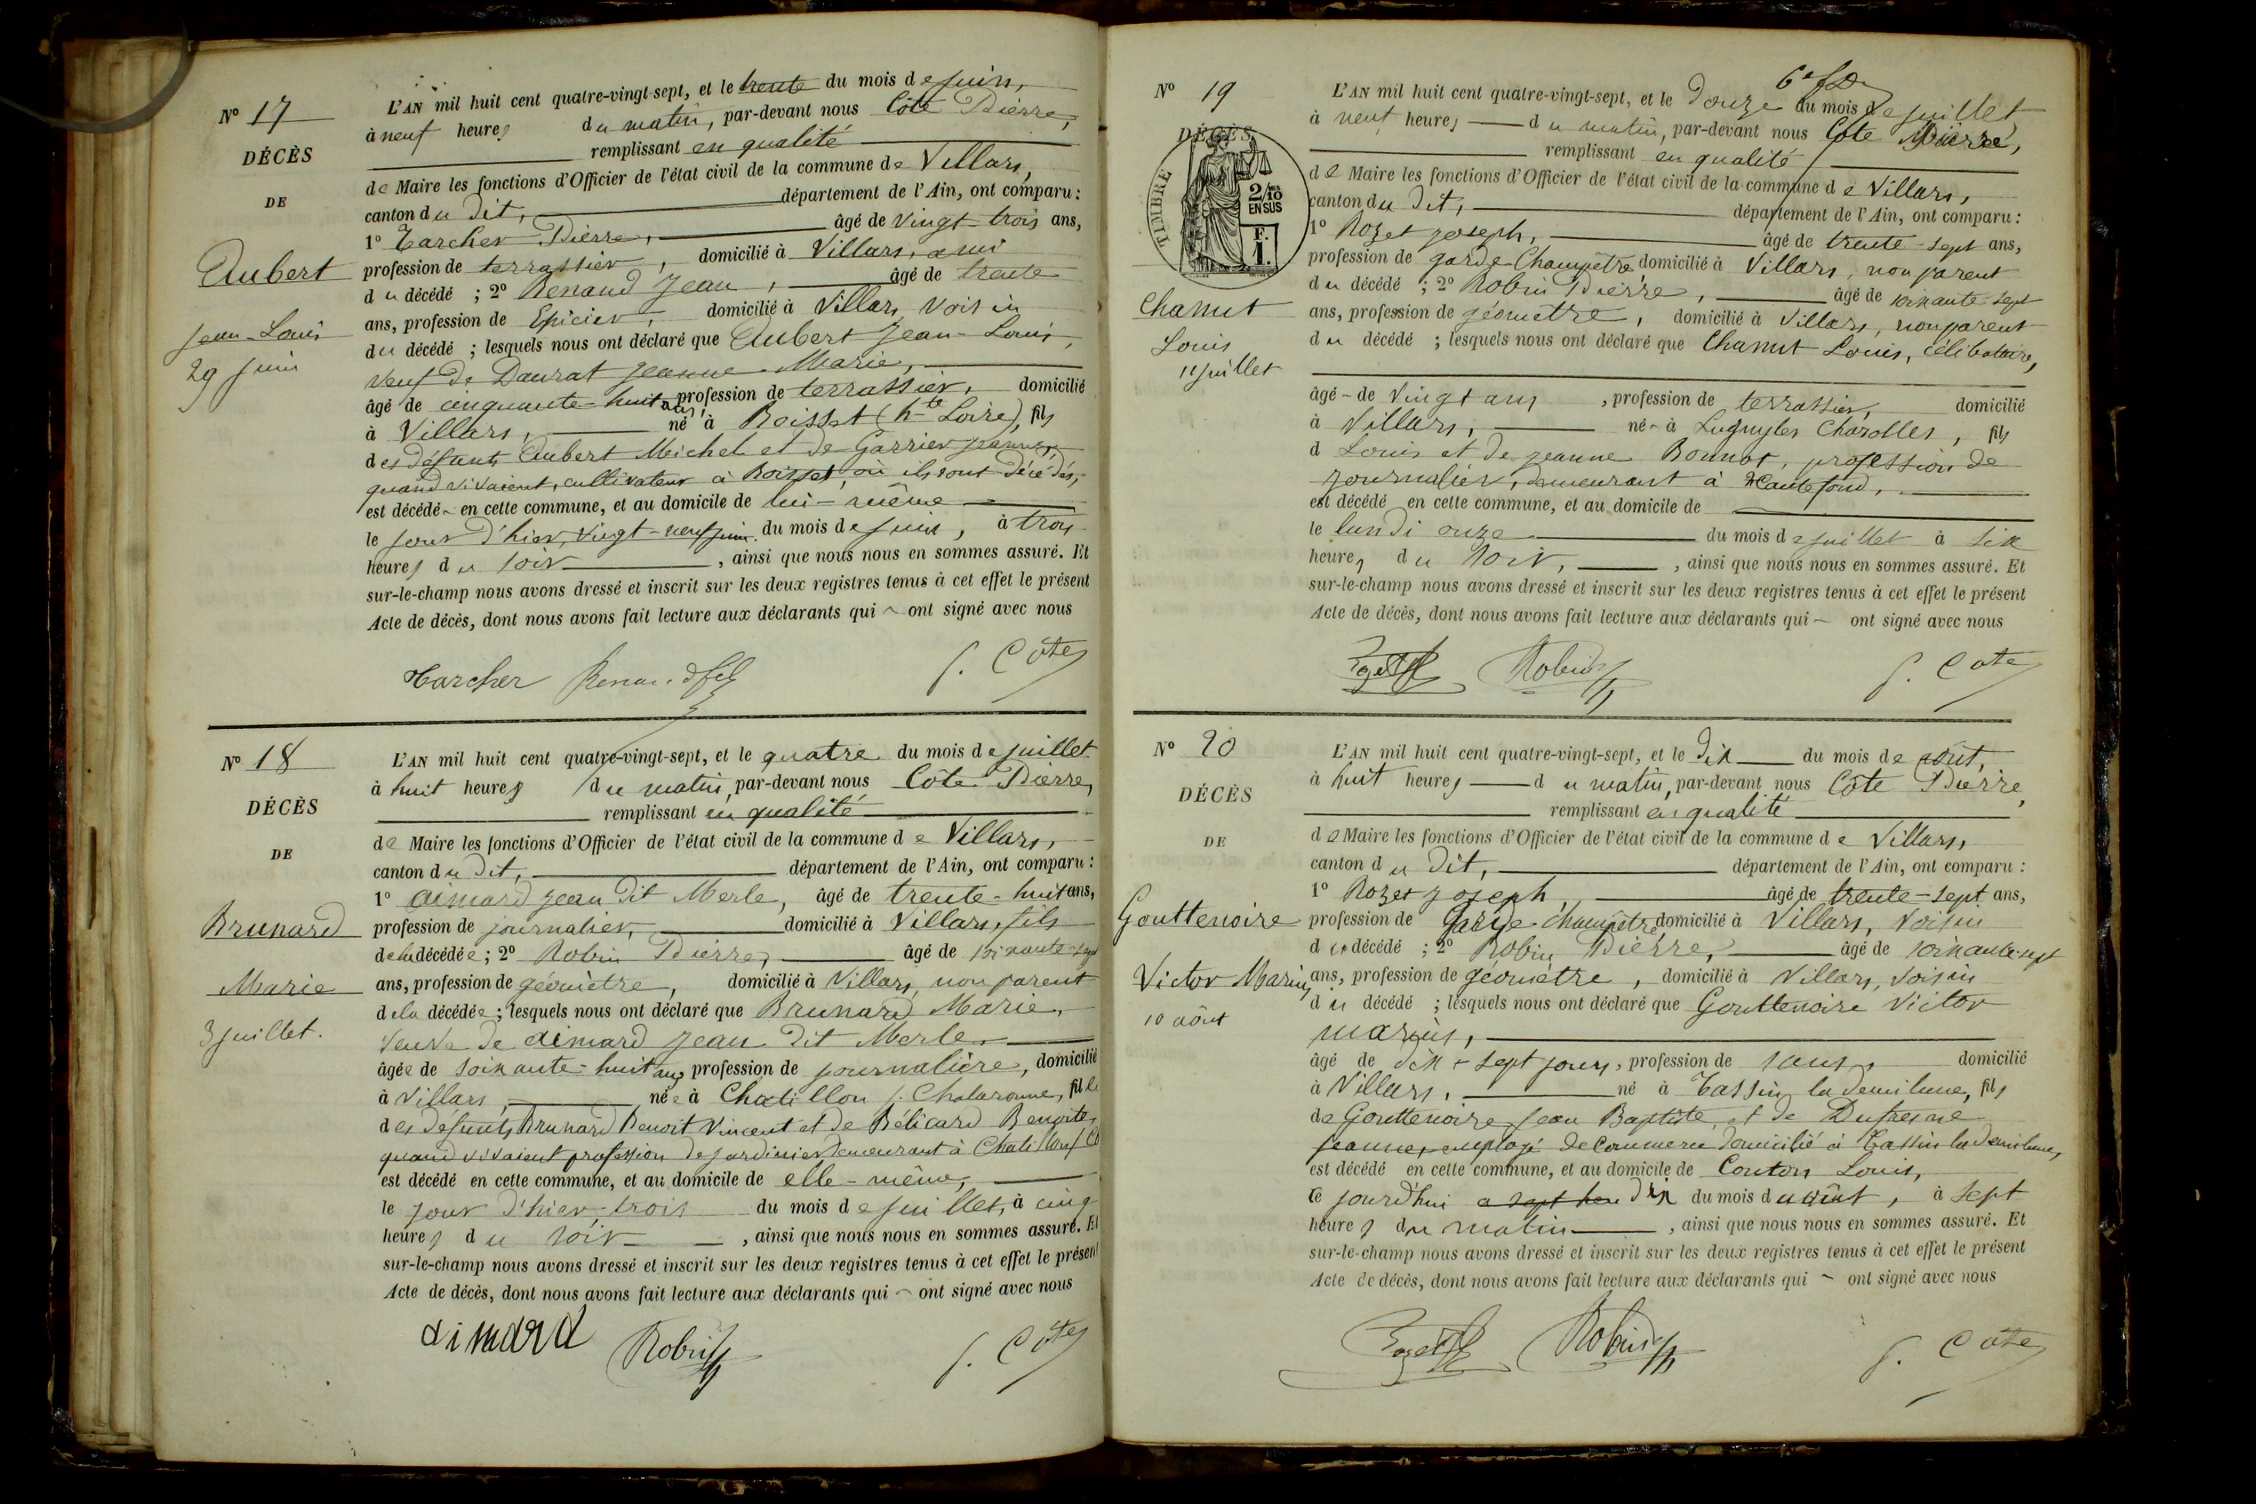 Nº 17
DÉCÈS
DE
Aubert
Jean-Louis
29 juin
L'AN mil huit cent quatre-vingt-sept, et le trente du mois de juin,
à neuf heures du matin, par-devant nous Côte Pierre,
remplissant en qualité
de Maire les fonctions d'Officier de l'état civil de la commune de Villars,
canton du dit, département de l'Ain, ont comparu :
1º Tarcher Pierre, âgé de vingt-trois ans,
profession de terrassier, domicilié à Villars, ami
du décédé ; 2º Renaud Jean, âgé de trente
ans, profession de Epicier, domicilié à Villars, voisin
du décédé ; lesquels nous ont déclaré que Aubert Jean-Louis,
veuf de Daurat Jeanne-Marie,
âgé de cinquante-huit ans, profession de terrassier, domicilié
à Villars, né à Boisset (hte Loire), fils
des défunts Aubert Michel et de Garrier Jeanne,
quand vivaient, cultivateur à Boisset, où ils sont décédés,
est décédé en cette commune, et au domicile de lui-même
le jour d'hier, vingt-neuf juin du mois de juin, à trois
heures du soir, ainsi que nous nous en sommes assuré. Et
sur-le-champ nous avons dressé et inscrit sur les deux registres tenus à cet effet le présent
Acte de décès, dont nous avons fait lecture aux déclarants qui ont signé avec nous
Tarcher Renaud fils P. Côte
Nº 18
DÉCÈS
DE
Brunard
Marie
3 juillet.
L'AN mil huit cent quatre-vingt-sept, et le quatre du mois de juillet
à huit heures du matin, par-devant nous Côte Pierre,
remplissant en qualité
de Maire les fonctions d'Officier de l'état civil de la commune de Villars,
canton du dit, département de l'Ain, ont comparu :
1º Aimard Jean dit Merle, âgé de trente-huit ans,
profession de journalier, domicilié à Villars, fils
de la décédée ; 2º Robin Pierre, âgé de soixante-sept
ans, profession de géomètre, domicilié à Villars, non parent
de la décédée ; lesquels nous ont déclaré que Brunard Marie,
veuve de Aimard Jean dit Merle,
âgée de soixante-huit ans, profession de journalière, domicilié
à Villars, née à Chatillon s. Chalaronne, fille
des défunts Brunard Benoit Vincent et de Bélicard Benoite,
quand vivaient profession de jardinier demeurant à Chatillon s. Ch
est décédé en cette commune, et au domicile de elle-même,
le jour d'hier, trois du mois de juillet, à cinq
heures du soir, ainsi que nous nous en sommes assuré. Et
sur-le-champ nous avons dressé et inscrit sur les deux registres tenus à cet effet le présent
Acte de décès, dont nous avons fait lecture aux déclarants qui ont signé avec nous
aimard Robin P. Côte
Nº 19
DÉCÈS
TIMBRE
2/10
EN SUS
F.
1.
Chanut
Louis
11 juillet
L'AN mil huit cent quatre-vingt-sept, et le douze du mois de juillet
à neuf heures du matin, par-devant nous Côte Pierre,
remplissant en qualité
de Maire les fonctions d'Officier de l'état civil de la commune de Villars,
canton du dit, département de l'Ain, ont comparu :
1º Rozet Joseph, âgé de trente-sept ans,
profession de garde-Champêtre, domicilié à Villars, non parent
du décédé ; 2º Robin Pierre, âgé de soixante-sept
ans, profession de géomètre, domicilié à Villars, non parent
du décédé ; lesquels nous ont déclaré que Chanut Louis, célibataire,
âgé de vingt ans, profession de terrassier, domicilié
à Villars, né à Charolles, fils
d Louis et de Jeanne Bonnot, profession de
journalier, demeurant à Hautefond,
est décédé en cette commune, et au domicile de
le lundi onze du mois de juillet à six
heures du soir, ainsi que nous nous en sommes assuré. Et
sur-le-champ nous avons dressé et inscrit sur les deux registres tenus à cet effet le présent
Acte de décès, dont nous avons fait lecture aux déclarants qui ont signé avec nous
Rozet Robin P. Côte
Nº 20
DÉCÈS
DE
Gouttenoire
Victor Marius
10 août
L'AN mil huit cent quatre-vingt-sept, et le dix du mois de août,
à huit heures du matin, par-devant nous Côte Pierre,
remplissant en qualité
de Maire les fonctions d'Officier de l'état civil de la commune de Villars,
canton du dit, département de l'Ain, ont comparu :
1º Rozet Joseph, âgé de trente-sept ans,
profession de Garde champêtre, domicilié à Villars, voisin
du décédé ; 2º Robin Pierre, âgé de soixante-sept
ans, profession de géomètre, domicilié à Villars, voisin
du décédé ; lesquels nous ont déclaré que Gouttenoire Victor
Marius,
âgé de dix-sept jours, profession de sans, domicilié
à Villars, né à Tassin la demi lune, fils
de Gouttenoire Jean Baptiste et de Dufresne
Jeanne, employé de commerce domicilié à Tassin la demi lune,
est décédé en cette commune, et au domicile de Couton Louis,
ce jourd'hui a sept heu dix du mois du août, à sept
heures du matin, ainsi que nous nous en sommes assuré. Et
sur-le-champ nous avons dressé et inscrit sur les deux registres tenus à cet effet le présent
Acte de décès, dont nous avons fait lecture aux déclarants qui ont signé avec nous
Rozet Robin P. Côte